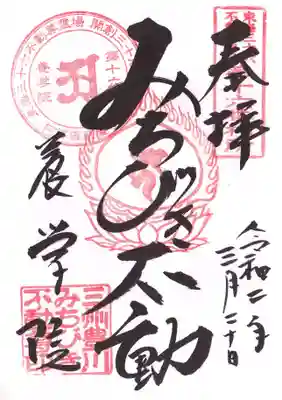 奉拝
令和二年
三月二十日
みちびき不動
養学院
三州豊川
みちびき
不動尊